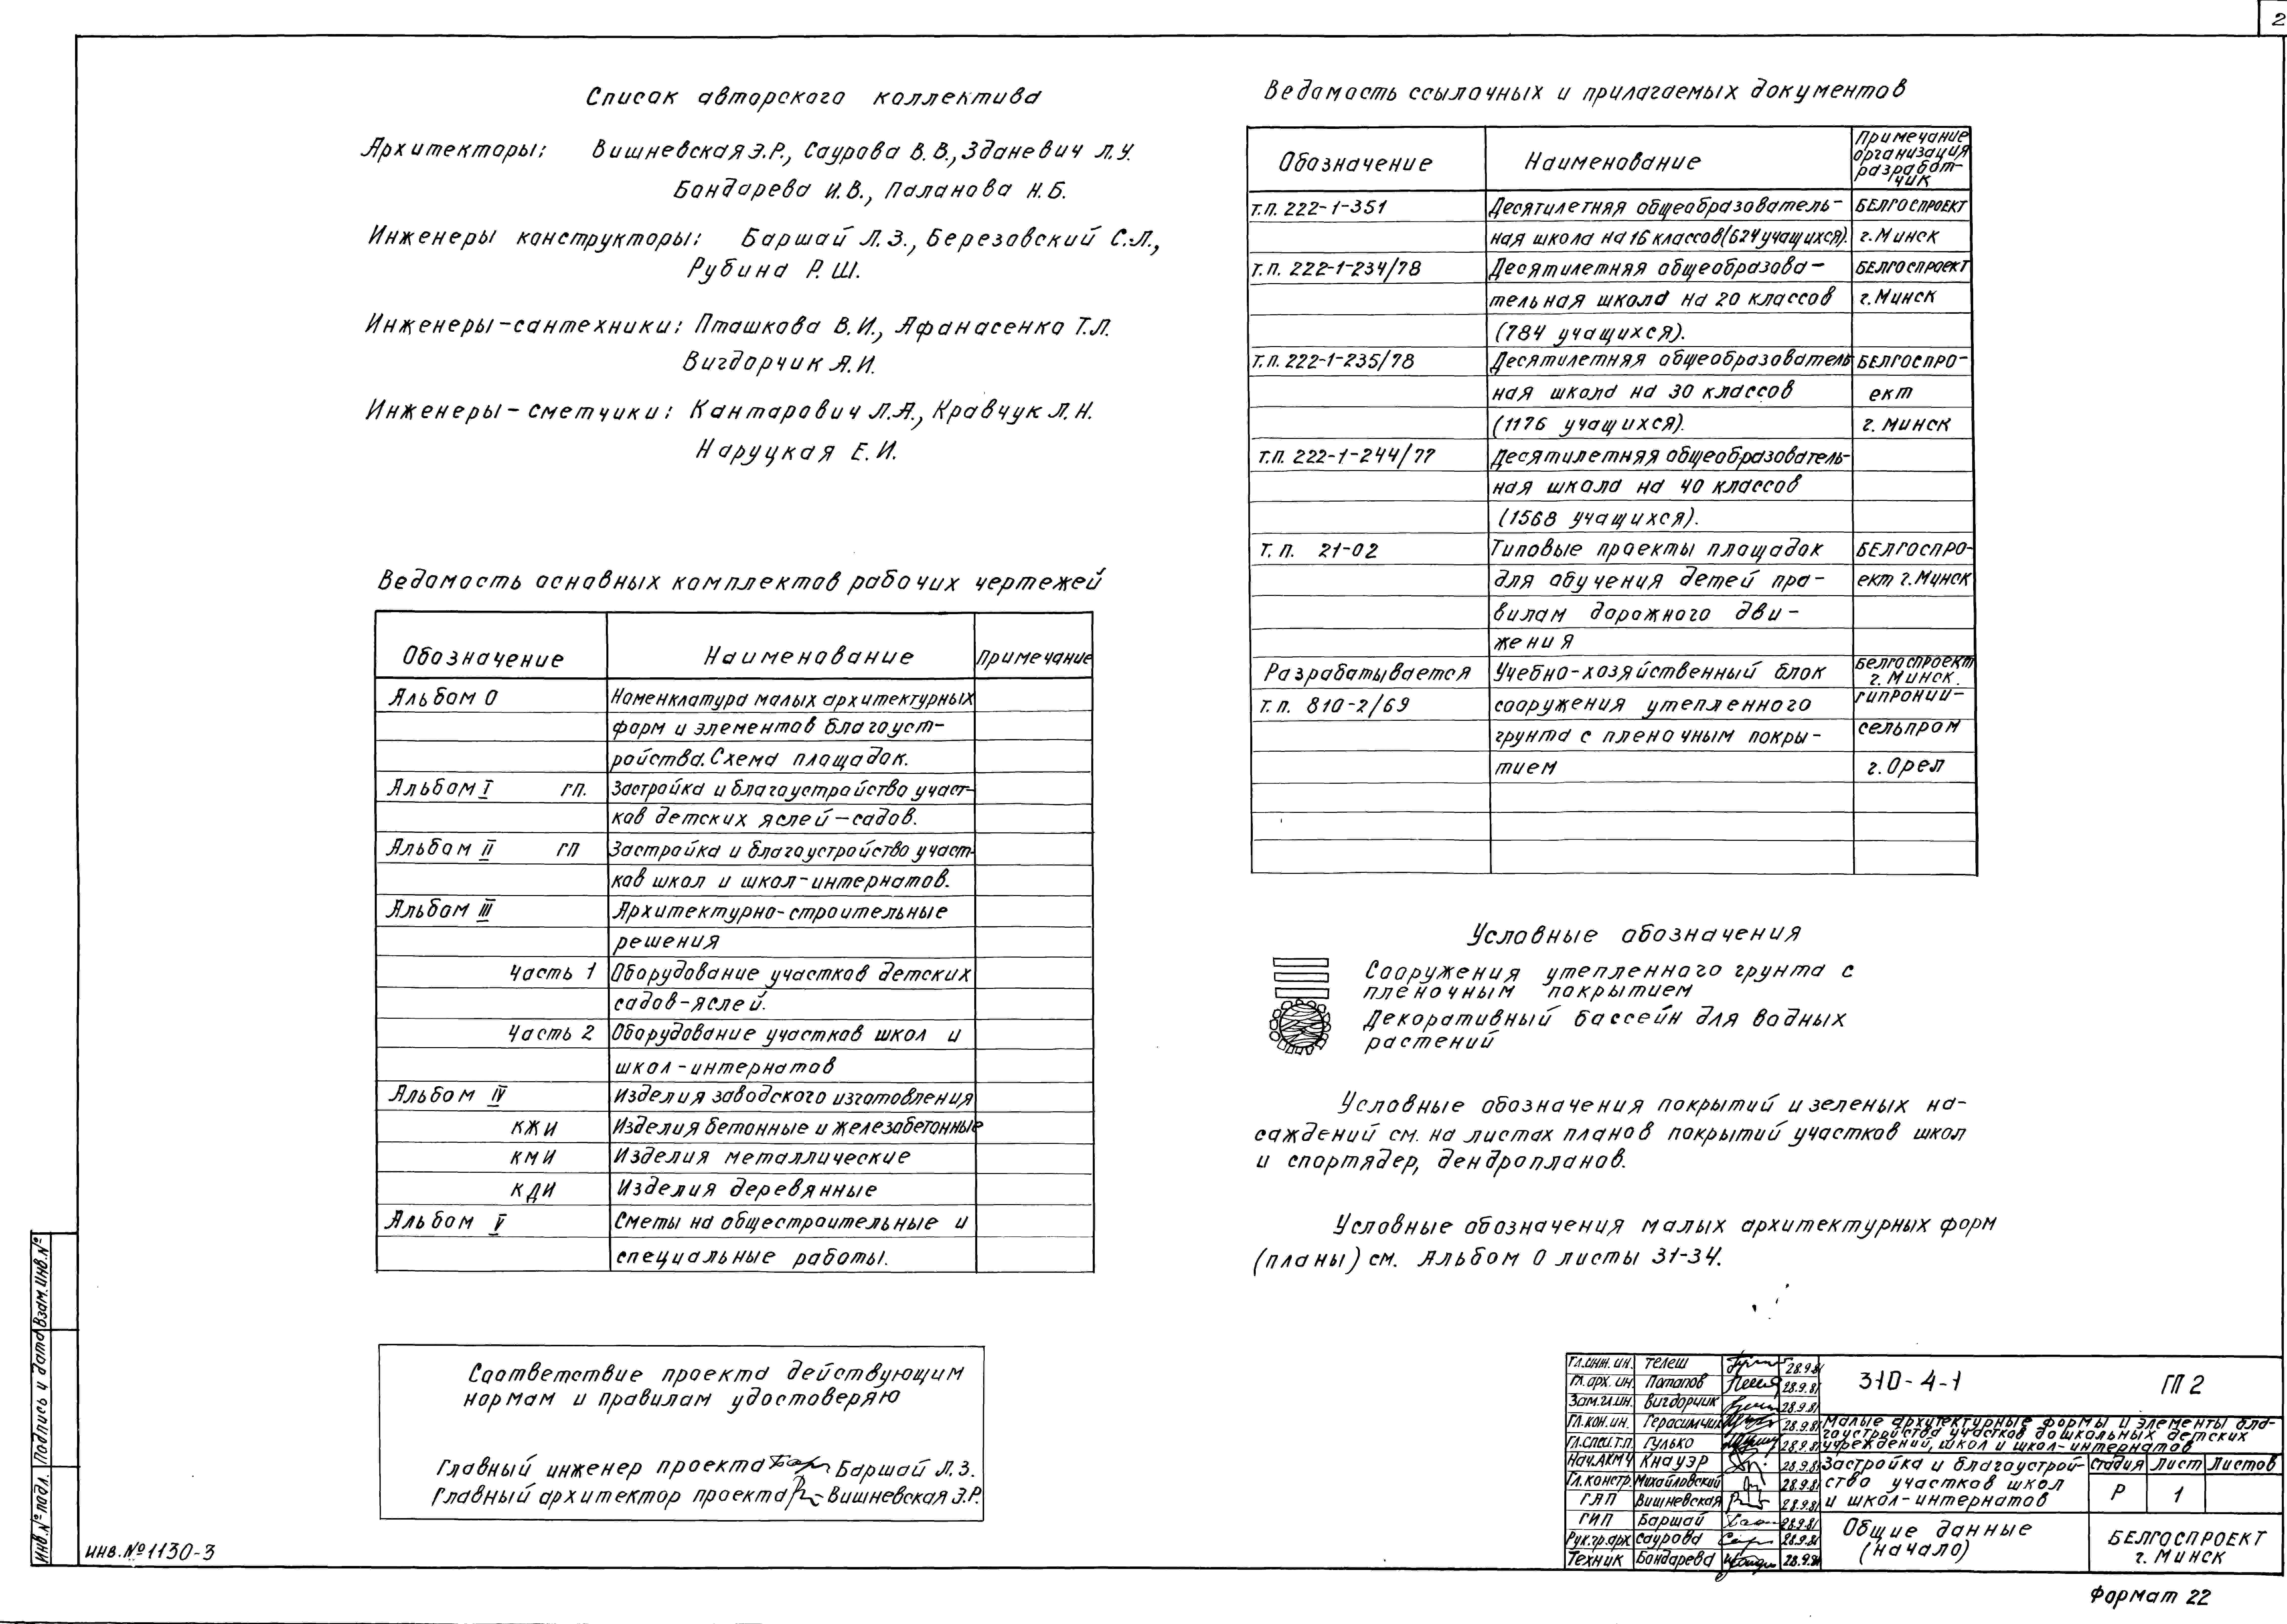 2
Список авторского коллектива
Архитекторы: Вишневская Э.Р., Саурова В.В., Зданевич Л.У.
Бондарева И.В., Паланова Н.Б.
Инженеры конструкторы: Баршай Л.З., Березовский С.Л.,
Рубина Р.Ш.
Инженеры-сантехники: Пташкова В.И., Афанасенко Т.Л.
Вигдорчик А.И.
Инженеры-сметчики: Кантарович Л.А., Кравчук Л.Н.
Наруцкая Е.И.
Ведомость основных комплектов рабочих чертежей
Обозначение Наименование Примечание
Альбом 0 Номенклатура малых архитектурных
форм и элементов благоуст-
ройства. Схема площадок.
Альбом I ГП. Застройка и благоустройство участ-
ков детских яслей-садов.
Альбом II ГП Застройка и благоустройство участ-
ков школ и школ-интернатов.
Альбом III Архитектурно-строительные
решения
Часть 1 Оборудование участков детских
садов-яслей.
Часть 2 Оборудование участков школ и
школ-интернатов
Альбом IV Изделия заводского изготовления
КЖИ Изделия бетонные и железобетонные
КМИ Изделия металлические
КДИ Изделия деревянные
Альбом V Сметы на общестроительные и
специальные работы.
Соответствие проекта действующим
нормам и правилам удостоверяю
Главный инженер проекта Баршай Л.З.
Главный архитектор проекта Вишневская Э.Р.
Ведомость ссылочных и прилагаемых документов
Обозначение Наименование Примечание организация разработ-чик
т.п. 222-1-351 Десятилетняя общеобразователь- БЕЛГОСПРОЕКТ
ная школа на 16 классов (624 учащихся). г.Минск
т.п. 222-1-234/78 Десятилетняя общеобразова- БЕЛГОСПРОЕКТ
тельная школа на 20 классов г.Минск
(784 учащихся).
т.п. 222-1-235/78 Десятилетняя общеобразователь БЕЛГОСПРО-
ная школа на 30 классов ект
(1176 учащихся). г. Минск
т.п. 222-1-244/77 Десятилетняя общеобразователь-
ная школа на 40 классов
(1568 учащихся).
т.п. 21-02 Типовые проекты площадок БЕЛГОСПРО-
для обучения детей пра- ект г.Минск
вилам дорожного дви-
жения
Разрабатывается Учебно-хозяйственный блок Белгоспроект г. Минск.
т.п. 810-2/69 сооружения утепленного гипронии-
грунта с пленочным покры- сельпром
тием г. Орел
Условные обозначения
Сооружения утепленного грунта с
пленочным покрытием
Декоративный бассейн для водных
растений
Условные обозначения покрытий и зеленых на-
саждений см. на листах планов покрытий участков школ
и спортядер, дендропланов.
Условные обозначения малых архитектурных форм
(планы) см. Альбом 0 листы 31-34.
Гл.инж.ин. Телеш 28.9.81
Гл.арх.ин. Потапов 28.9.81
Зам.гл.ин. Вигдорчик 28.9.81
Гл.кон.ин. Герасимчик 28.9.81
Гл.спец.т.п. Гулько 28.9.81
Нач.АКМЧ Кнауэр 28.9.81
Гл.констр. Михайловский 28.9.81
ГАП Вишневская 28.9.81
ГИП Баршай 28.9.81
Рук.гр.арх Саурова 28.9.81
Техник Бондарева 28.9.81
310-4-1 ГП 2
Малые архитектурные формы и элементы бла-
гоустройства участков дошкольных детских
учреждений, школ и школ-интернатов
Застройка и благоустрой-
ство участков школ
и школ-интернатов
Стадия Лист Листов
Р 1
Общие данные
(начало)
БЕЛГОСПРОЕКТ
г. Минск
Формат 22
Инв.№ подл. Подпись и дата Взам.инв.№
инв.№1130-3